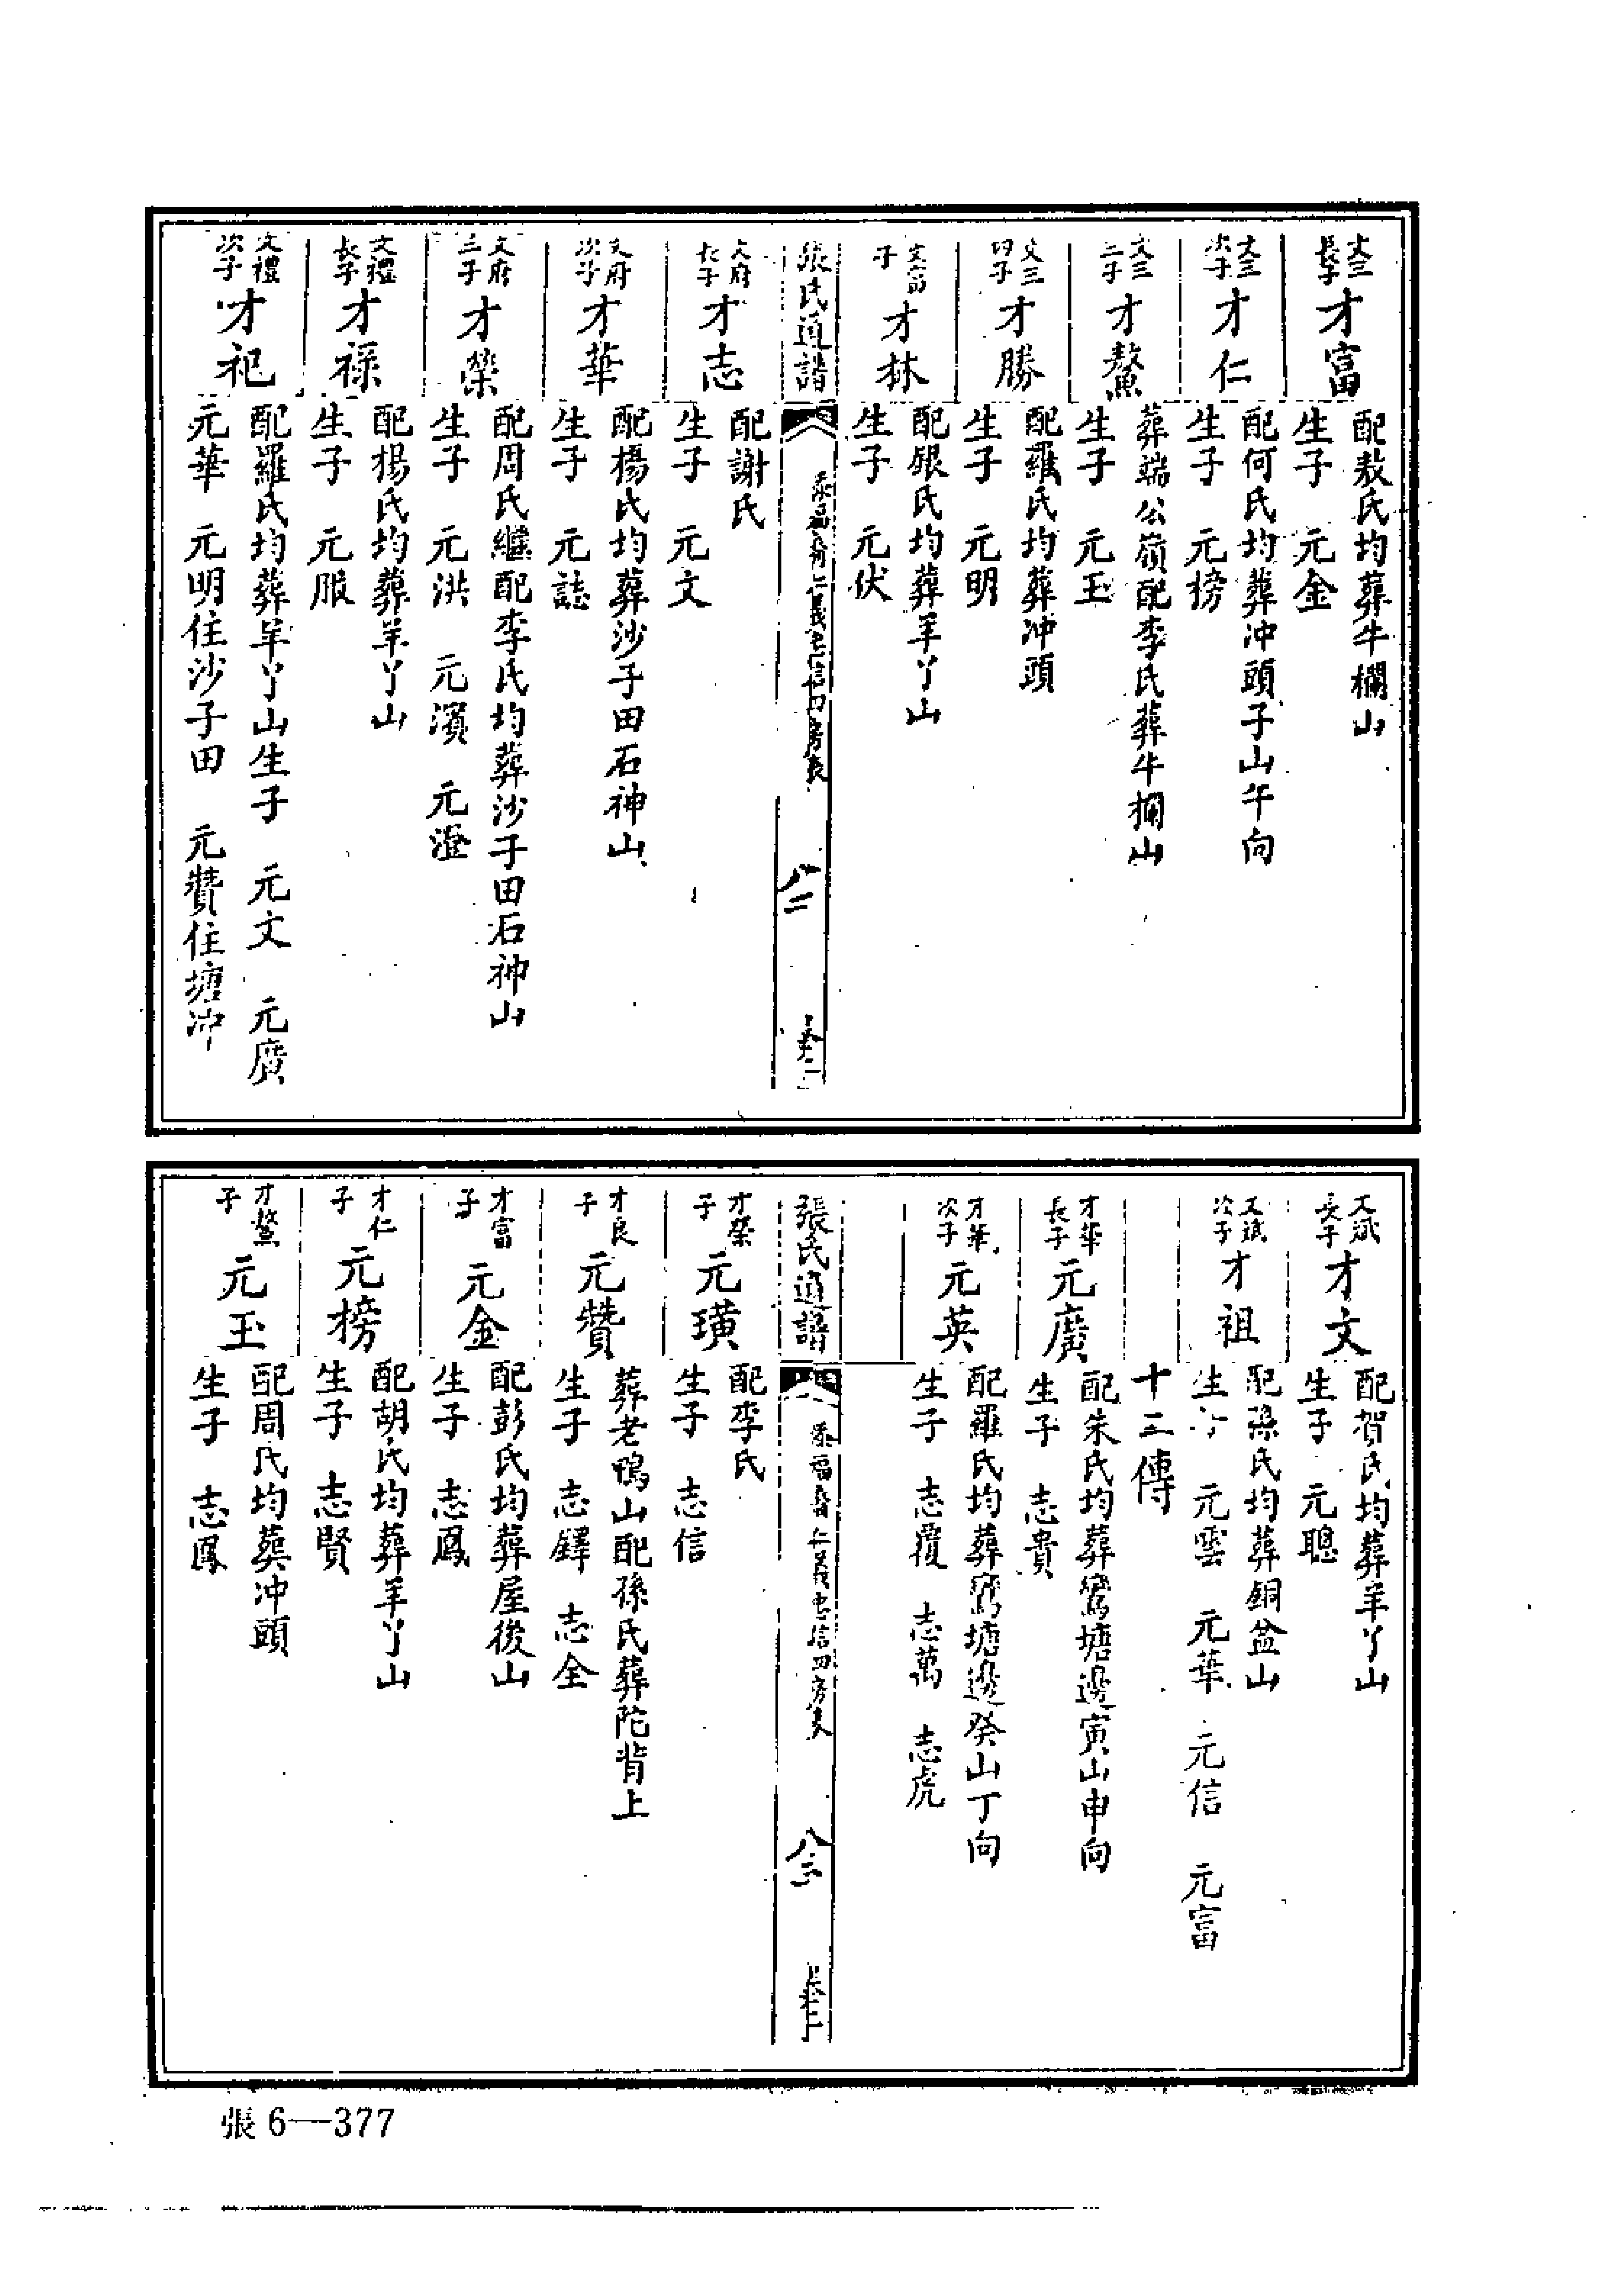 文三
長子
才富
配敖氏均葬牛欄山
生子　元金
文三
次子
才仁
配何氏均葬冲頭子山午向
生子　元榜
文三
三子
才鰲
葬端公嶺配李氏葬牛欄山
生子　元玉
文三
四子
才勝
配羅氏均葬冲頭
生子　元明
文富
子
才林
配銀氏均葬羊丫山
生子　元伏
張氏通譜
泰福裔仁義忠信四房表
八二
卷二
文府
長子
才志
配謝氏
生子　元文
文府
次子
才華
配楊氏均葬沙子田石神山
生子　元誌
文府
三子
才榮
配周氏繼配李氏均葬沙子田石神山
生子　元洪　元濱　元澄
文禮
長子
才祿
配楊氏均葬羊丫山
生子　元服
文禮
次子
才祀
配羅氏均葬羊丫山生子　元文　元廣
元華　元明住沙子田　元贊住塘冲
文斌
長子
才文
配賀氏均葬羊丫山
生子　元聰
文斌
次子
才祖
配孫氏均葬銅盆山
生子　元雲　元華　元信　元富
十三傳
才華
長子
元廣
配朱氏均葬鸞塘邊寅山申向
生子　志貴
才華
次子
元英
配羅氏均葬鸞塘邊癸山丁向
生子　志覆　志萬　志虎
張氏通譜
泰福裔仁義忠信四房表
八三
卷二
才榮
子
元璜
配李氏
生子　志信
才良
子
元贊
葬老鴨山配孫氏葬陀背上
生子　志鐸　志全
才富
子
元金
配彭氏均葬屋後山
生子　志鳳
才仁
子
元榜
配胡氏均葬羊丫山
生子　志賢
才鰲
子
元玉
配周氏均葬冲頭
生子　志鳳
張6—377